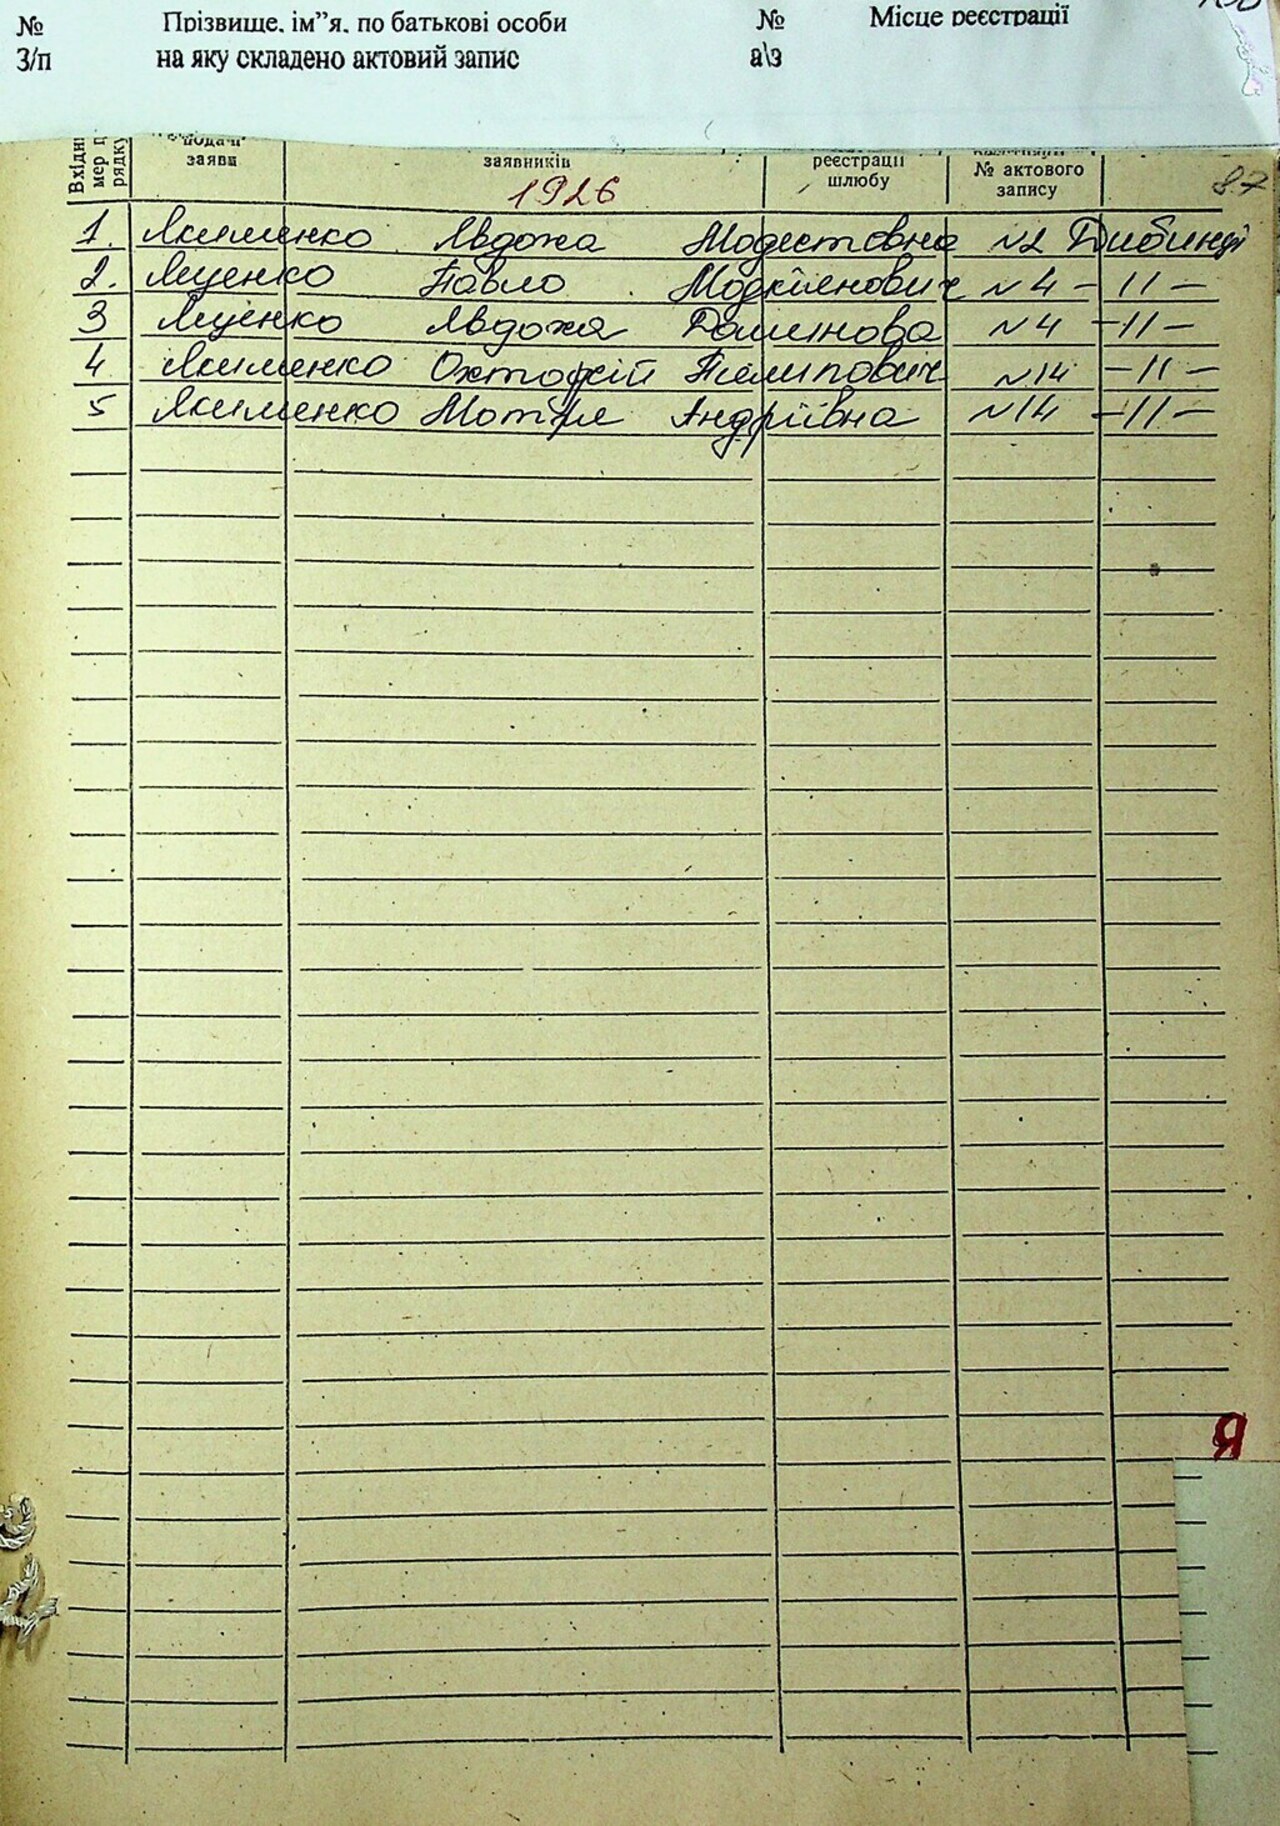 № Прізвище, ім”я, по батькові особи № Місце реєстрації
З/п на яку складено актовий запис а\з
Вхідн мер п рядку подачі заяви заявників реєстрації шлюбу № актового запису 87
1926
1. Якименко Явдоха Модестовна №2 Дибинці
2. Яценко Павло №4 -11-
3 Яценко Явдохя №4 -11-
4 Якименко Пилипович №14 -11-
5 Якименко Мотря Андріївна №14 -11-
Я